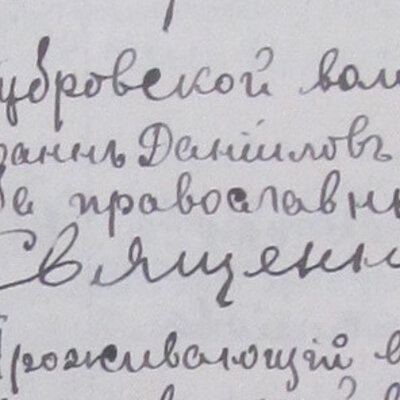 убровской вол
оаннъ Даніиловъ
ба православны
Священн
Проживающій в